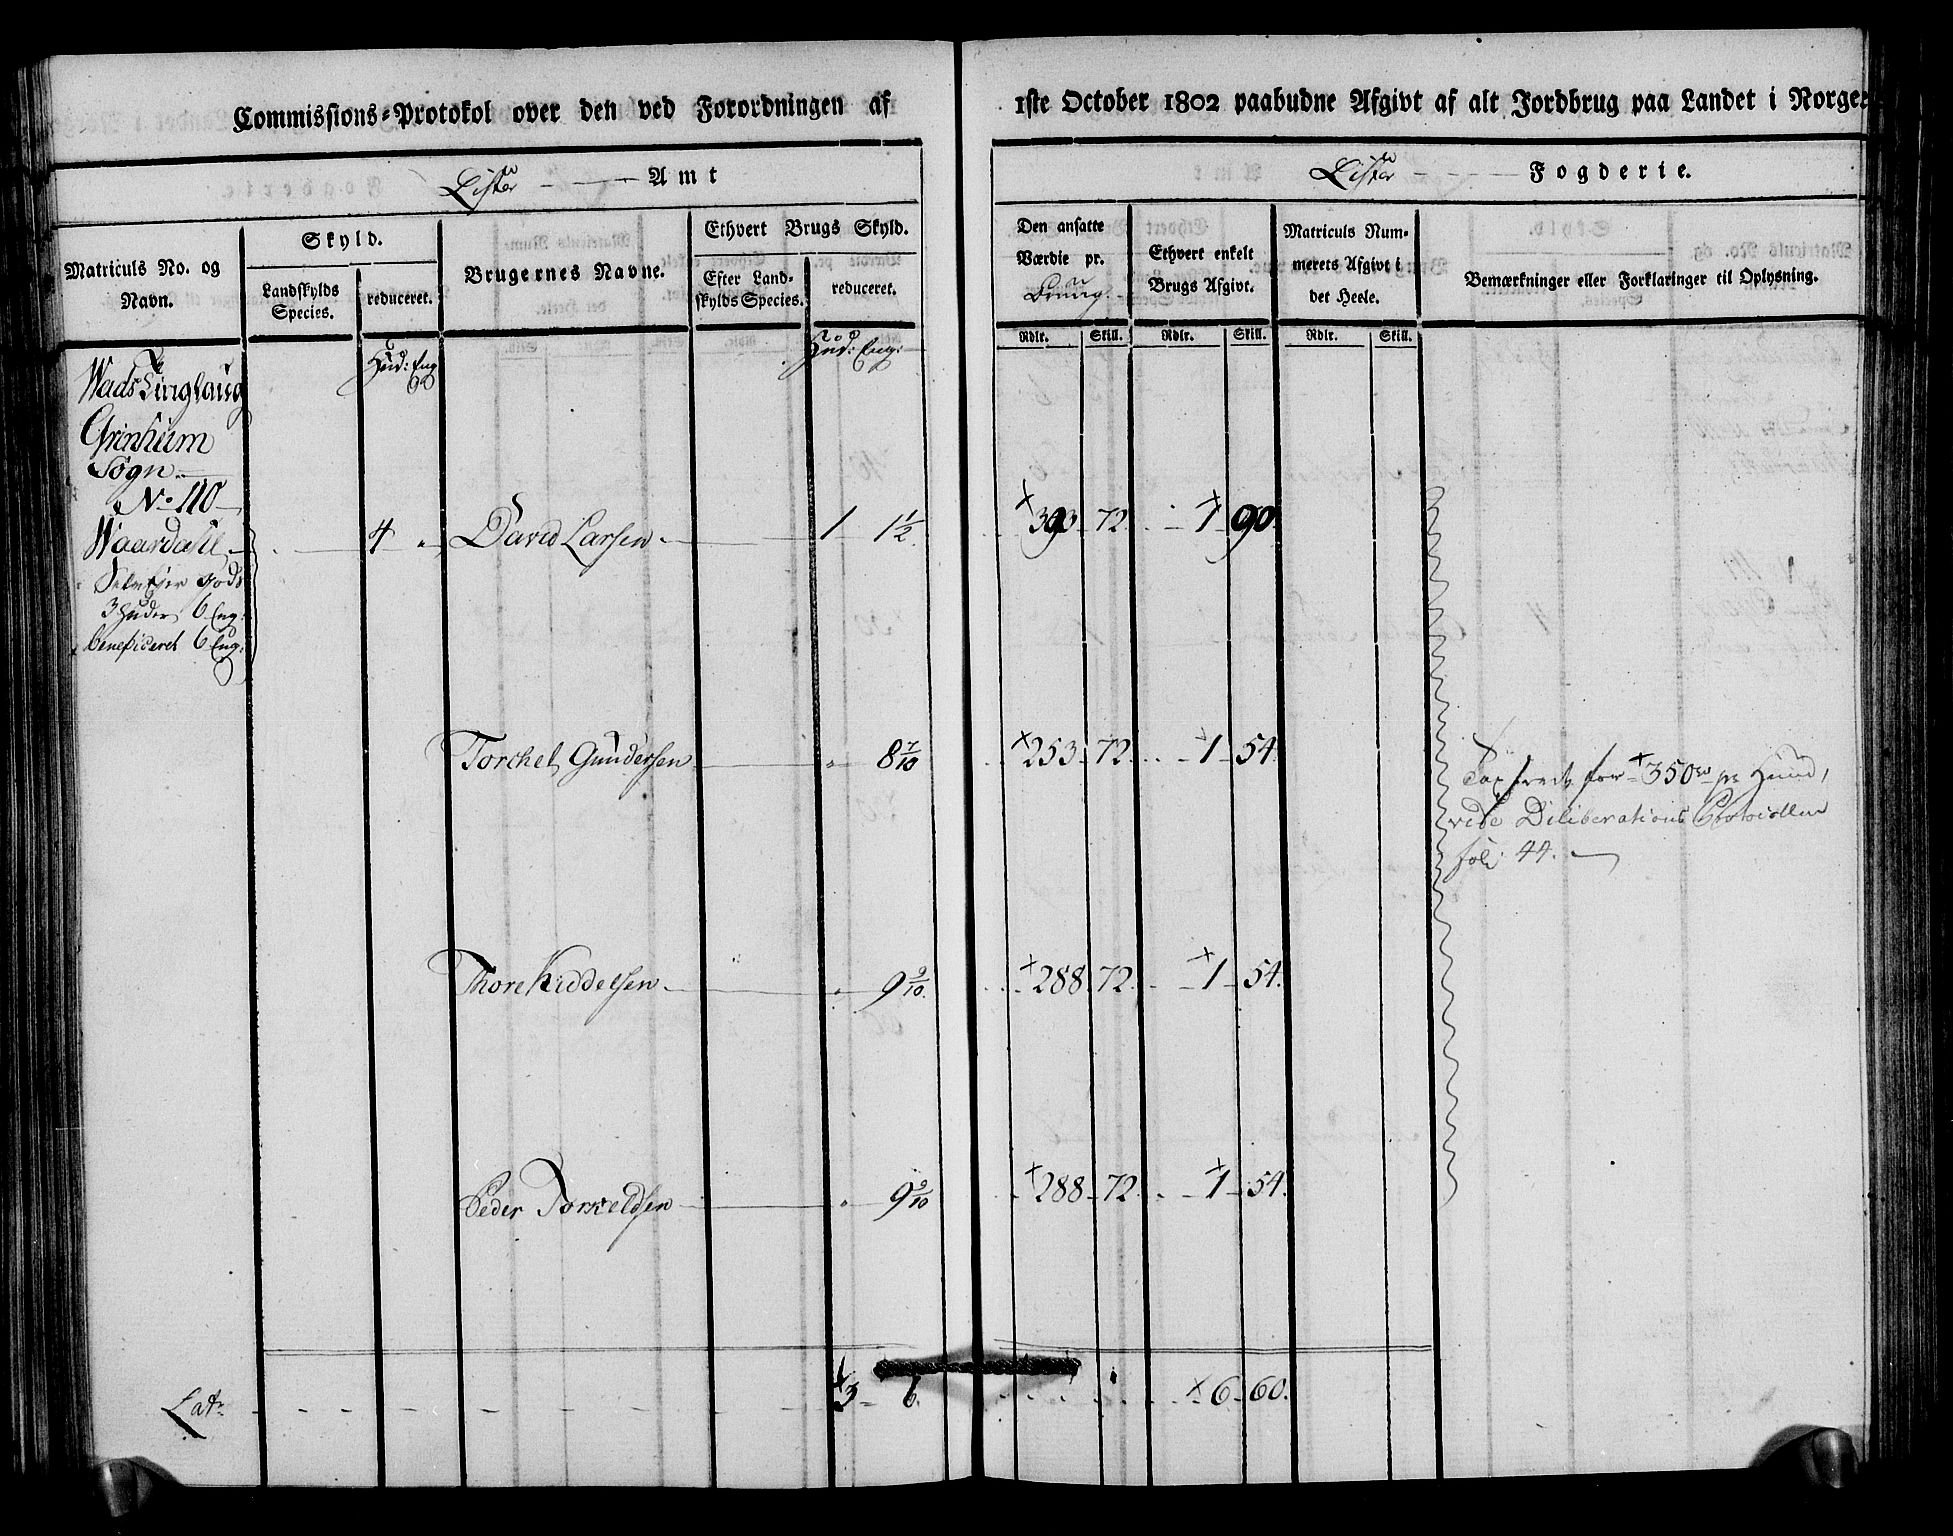 Commissions-Protokol over den ved Forordningen af 1ste October 1802 paabudne Afgivt af alt Jordbrug paa Landet i Norge
Lister Amt
Lister Fogderie.
Matriculs No. og Navn.
Skyld.
Landskylds Species.
reduceret.
Brugernes Navne.
Ethvert Brugs Skyld.
Efter Landskylds Species.
reduceret.
Den ansatte Værdie pr. Bruug.
Ethvert enkelt Brugs Afgivt.
Matriculs Nummerets Afgivt i det Heele.
Bemærkninger eller Forklaringer til Oplysning.
Rdlr. Skill. Rdlr. Skill. Rdlr. Skill.
Hud: Eng
Hud: Eng:
Wads Tinglaug
Grinheim
Sogn
No 110
Waardahl 4 " David Larsen 1 1 1/2 393 72 1 90
Selv Eier Gods
3 Huder 6 Eng:
beneficeret 6 Eng:
Torchel Gundersen " 8 7/10 253 72 1 54
Taxeret for 350 rd pr Huud,
vide Deliberations Protocollen
fol: 44.
Thore Kiddelsen " 9 9/10 288 72 1 54
Peder Torkeldsen " 9 9/10 288 72 1 54
Latr 3 6 6 60